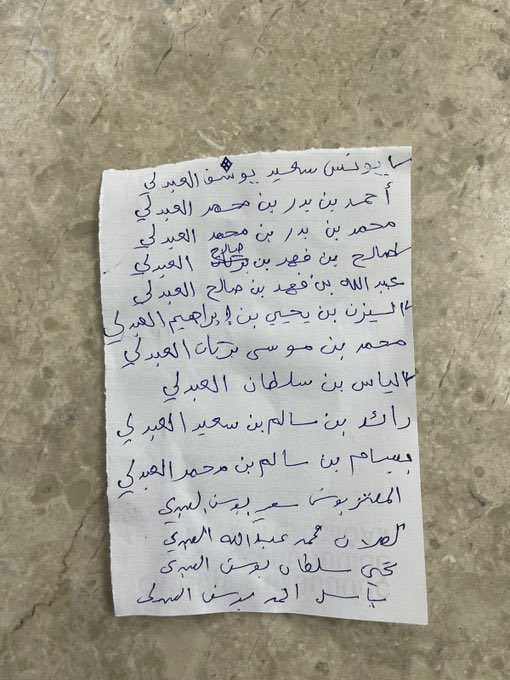 يونس سعيد يوسف العبدلي
أحمد بن بدر بن محمد العبدلي
محمد بن بدر بن محمد العبدلي
صالح بن فهد بن صالح العبدلي
عبدالله بن فهد بن صالح العبدلي
اليزن بن يحيى بن إبراهيم العبدلي
محمد بن موسى بركات العبدلي
الياس بن سلطان العبدلي
رائد بن سالم بن سعيد العبدلي
بسام بن سالم بن محمد العبدلي
المعتز يوسف العبدلي
محمد عبدالله العبدلي
سلطان يوسف العبدلي
احمد يوسف العبدلي